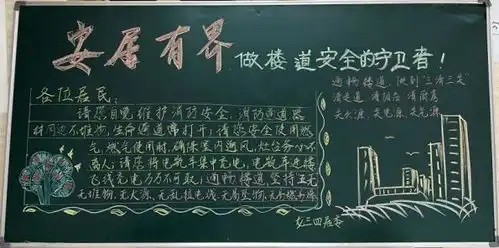 安居有界 做楼道安全的守卫者！
各位居民：
请您自觉维护消防安全，消防通道器
材周边不堆物，生命通道常打开；请您安全使用燃
气，燃气使用时，确保室内通风，灶台旁不
离人；请您将电瓶车集中充电，电瓶车进楼
飞线充电万万不可取；通畅楼道坚持五无
无堆物，无火源，无乱拉电线，无易坠物，无
通畅楼道，做到"三清三关"
清走道 清阳台 清厨房
关火源 关电源 关气源
三四居委